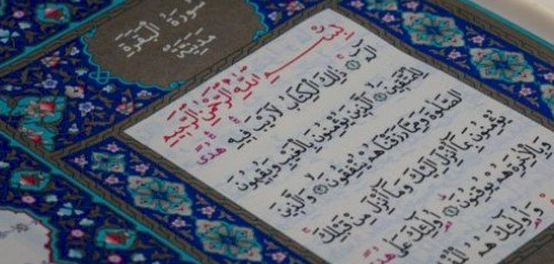 سُورَةُ الْبَقَرَةِ
مَدَنِيَّةٌ
بِسْمِ اللَّهِ الرَّحْمَنِ الرَّحِيمِ
الم ذَلِكَ الْكِتَابُ لَا رَيْبَ فِيهِ هُدًى
لِلْمُتَّقِينَ الَّذِينَ يُؤْمِنُونَ بِالْغَيْبِ وَيُقِيمُونَ
الصَّلَاةَ وَمِمَّا رَزَقْنَاهُمْ يُنْفِقُونَ وَالَّذِينَ
يُؤْمِنُونَ بِمَا أُنْزِلَ إِلَيْكَ وَمَا أُنْزِلَ مِنْ قَبْلِكَ
وَبِالْآخِرَةِ هُمْ يُوقِنُونَ أُولَئِكَ عَلَى هُدًى
وَأُولَئِكَ هُمُ